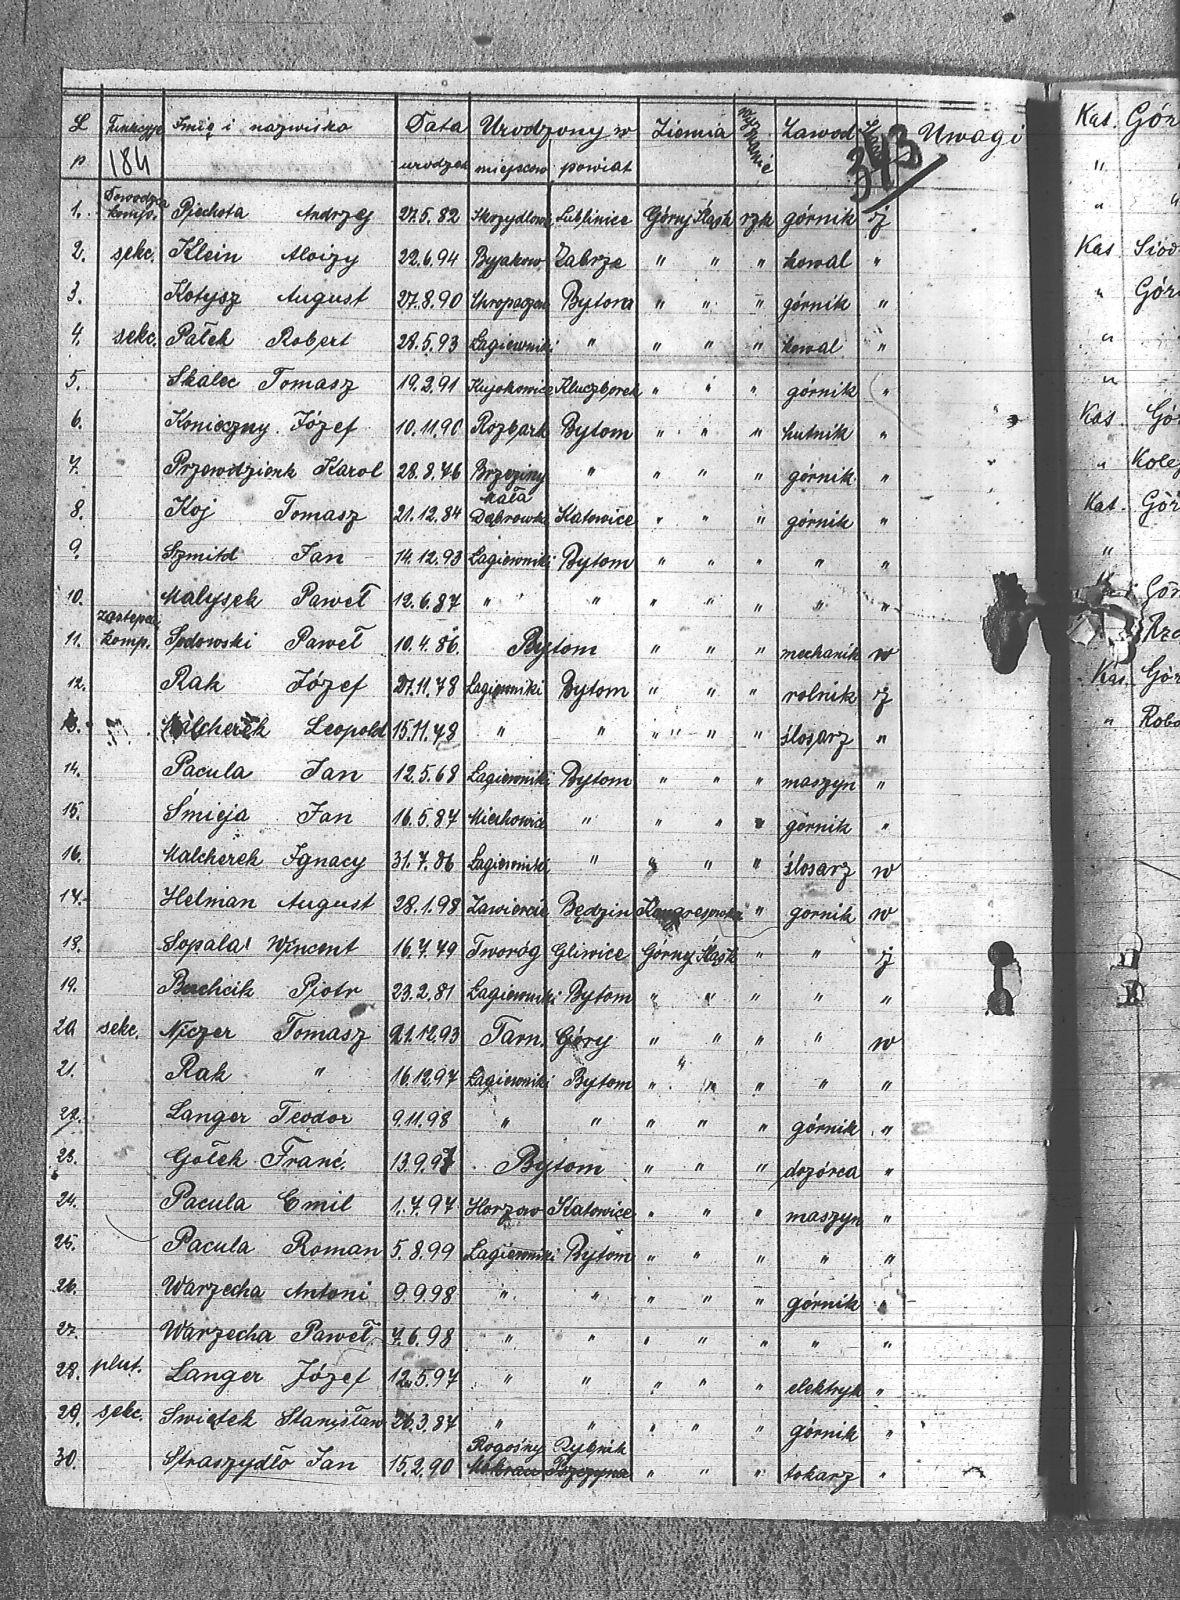 L Funkcyja Imię i nazwisko Data Urodzony w Ziemia wyznanie Zawod 343 Uwagi
p 184 urodzen miejscow powiat
1. Dowodzca kompo. Piechota Andrzej 27.5.82 Lublinice Górny Śląsk rzk górnik ż
2. sekc. Klein Aloizy 22.6.94 Bujakow Zabrze " " " kowal "
3. Kotysz August 27.8.90 Chropaczow Bytom " " " górnik "
4. sekc. Pałek Robert 28.5.93 Łagiewniki " " " " kowal "
5. Skalec Tomasz 19.2.91 Kujakowice Kluczborek " " " górnik "
6. Konieczny Józef 10.11.90 Rozbark Bytom " " " hutnik "
7. Przewdziark Karol 28.8.76 Brzeziny " " " " górnik "
8. Koj Tomasz 21.12.84 Mała Dąbrowka Katowice " " " górnik "
9. Szmitd Jan 14.12.93 Łagiewniki Bytom " " " " "
10. Małysek Paweł 12.6.87 " " " " " " " "
11. zastępca komp. Sodowski Paweł 10.4.86 Bytom " " " mechanik w
12. Rak Józef 27.11.78 Łagiewniki Bytom " " " rolnik ż
Malcherek Leopold 15.11.78 " " " " " ślosarz "
14. Pacula Jan 12.5.68 Łagiewniki Bytom " " " maszyn "
15. Śmieja Jan 16.5.87 Miechowice " " " " górnik "
16. Malcherek Ignacy 31.7.86 Łagiewniki " " " " ślosarz w
17. Helman August 28.1.98 Zawiercie Będzin Kongresowka " gornik w
18. Sopala Wincent 16.7.79 Tworóg Gliwice Górny Śląsk " " ż
19. Buchcik Piotr 23.2.81 Łagiewniki Bytom " " " " "
20 sekc. Niczer Tomasz 21.12.93 Tarn. Góry " " " " w
21. Rak " 16.12.97 Łagiewniki Bytom " " " " "
22. Langer Teodor 9.11.98 " " " " " górnik "
23. Gołek Franc. 13.9.97 Bytom " " " dozórca "
24. Pacula Emil 1.7.97 Horzow Katowice " " " maszyn "
25. Pacula Roman 5.8.99 Łagiewniki Bytom " " " " "
26. Warzecha Antoni 9.9.98 " " " " " górnik "
27. Warzecha Paweł 7.6.98 " " " " " " "
28. plut. Langer Józef 12.5.97 " " " " " elektryk "
29. sekc. Swiętek Stanisław 26.3.87 " " " " " górnik "
Rogośny Rybnik
30. Straszydło Jan 15.2.90 Pszczyna " " " tokarz "
Kas. Gór
"
"
Kas Siód
" Góri
"
"
Kas. Gó
" Kolej
Kat. Gór
"
Gór
Kas. Gór
" Robo